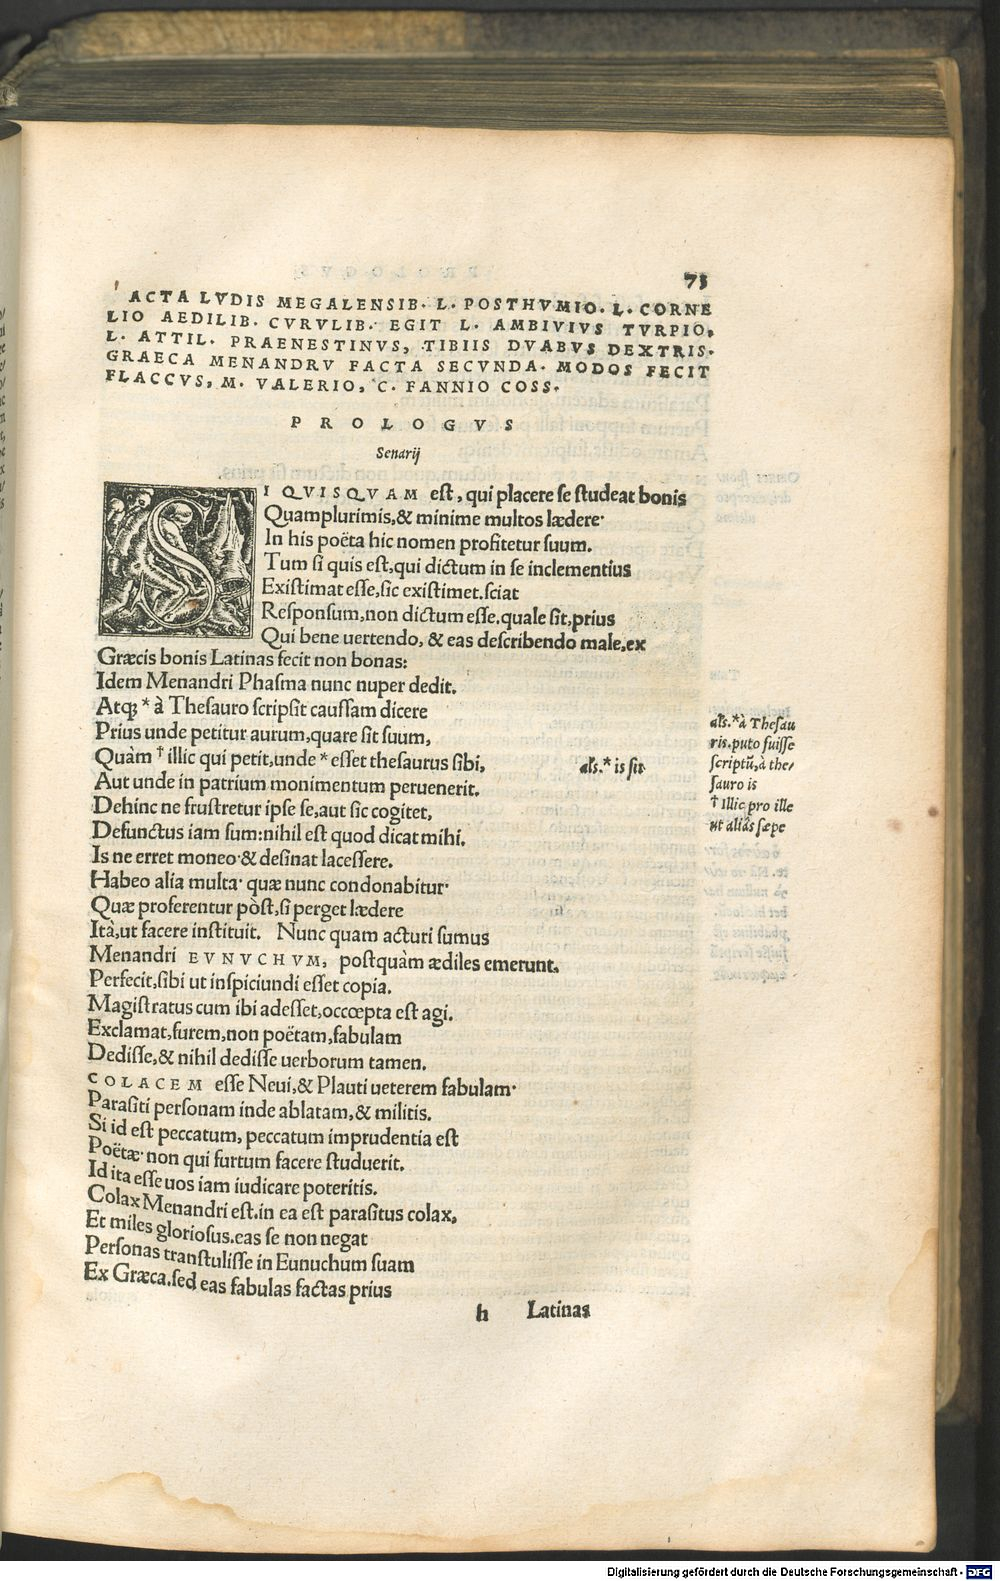 73
ACTA LVDIS MEGALENSIB. L. POSTHVMIO. L. CORNE
LIO AEDILIB. CVRVLIB. EGIT L. AMBIVIVS TVRPIO,
L. ATTIL. PRAENESTINVS, TIBIIS DVABVS DEXTRIS.
GRAECA MENANDRV FACTA SECVNDA. MODOS FECIT
FLACCVS, M. VALERIO, C. FANNIO COSS.
PROLOGVS
Senarij
SI QVISQVAM est, qui placere se studeat bonis
Quamplurimis,& minime multos lædere·
In his poëta hic nomen profitetur suum.
Tum si quis est,qui dictum in se inclementius
Existimat esse,sic existimet.sciat
Responsum,non dictum esse.quale sit,prius
Qui bene uertendo, & eas describendo male,ex
Græcis bonis Latinas fecit non bonas:
Idem Menandri Phasma nunc nuper dedit.
Atq; * à Thesauro scripsit caussam dicere
Prius unde petitur aurum,quare sit suum,
Quàm † illic qui petit,unde * esset thesaurus sibi,
Aut unde in patrium monimentum peruenerit.
Dehinc ne frustretur ipse se,aut sic cogitet,
Defunctus iam sum:nihil est quod dicat mihi.
Is ne erret moneo·& desinat lacessere.
Habeo alia multa· quæ nunc condonabitur·
Quæ proferentur pòst,si perget lædere
Ità,ut facere instituit. Nunc quam acturi sumus
Menandri EVNVCHVM, postquàm ædiles emerunt.
Perfecit,sibi ut inspiciundi esset copia.
Magistratus cum ibi adesset,occœpta est agi.
Exclamat,furem,non poëtam,fabulam
Dedisse,& nihil dedisse uerborum tamen.
COLACEM esse Neui,& Plauti ueterem fabulam·
Parasiti personam inde ablatam,& militis.
Si id est peccatum, peccatum imprudentia est
Poëtæ· non qui furtum facere studuerit.
Id ita esse uos iam iudicare poteritis.
Colax Menandri est.in ea est parasitus colax,
Et miles gloriosus.eas se non negat
Personas transtulisse in Eunuchum suam
Ex Græca.sed eas fabulas factas prius
h Latinas
als.* is sit
als.*à Thesau
ris.puto fuisse
scriptũ,à the/
sauro is
† Illic pro ille
ut aliâs sæpe
Digitalisierung gefördert durch die Deutsche Forschungsgemeinschaft - DFG